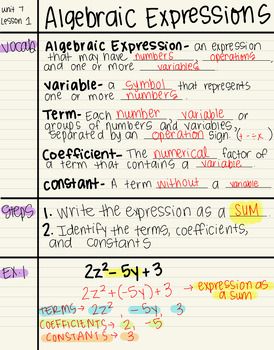 unit 7
Lesson 1
Algebraic Expressions
Vocab
Algebraic Expression- an expression
that may have numbers, operations,
and one or more variables.
variable- a symbol that represents
one or more numbers.
Term- Each number, variable or
groups of numbers and variables,
separated by an operation sign (+-÷×)
Coefficient- The numerical factor of
a term that contains a variable.
constant- A term without a variable.
Steps
1. Write the expression as a SUM.
2. Identify the terms, coefficients,
and constants.
EX
2z²-5y+3
2z²+(-5y)+3 → expression as
a sum
TERMS → 2z², -5y, 3
COEFFICIENTS → 2, -5
CONSTANTS → 3